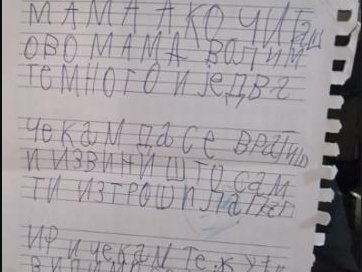 МАМА АКО ЧИТАШ
ОВО МАМА ВОЛИМ
ТЕ МНОГО И ЈЕДВА
ЧЕКАМ ДА СЕ ВРАТИШ
И ИЗВИНИ ШТО САМ
ТИ ИЗТРОШИЛА
И ЧЕКАМ ТЕ